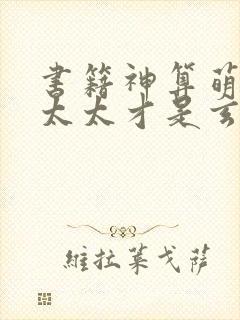 书籍神算萌
太太才是玄
維拉萊戈薩